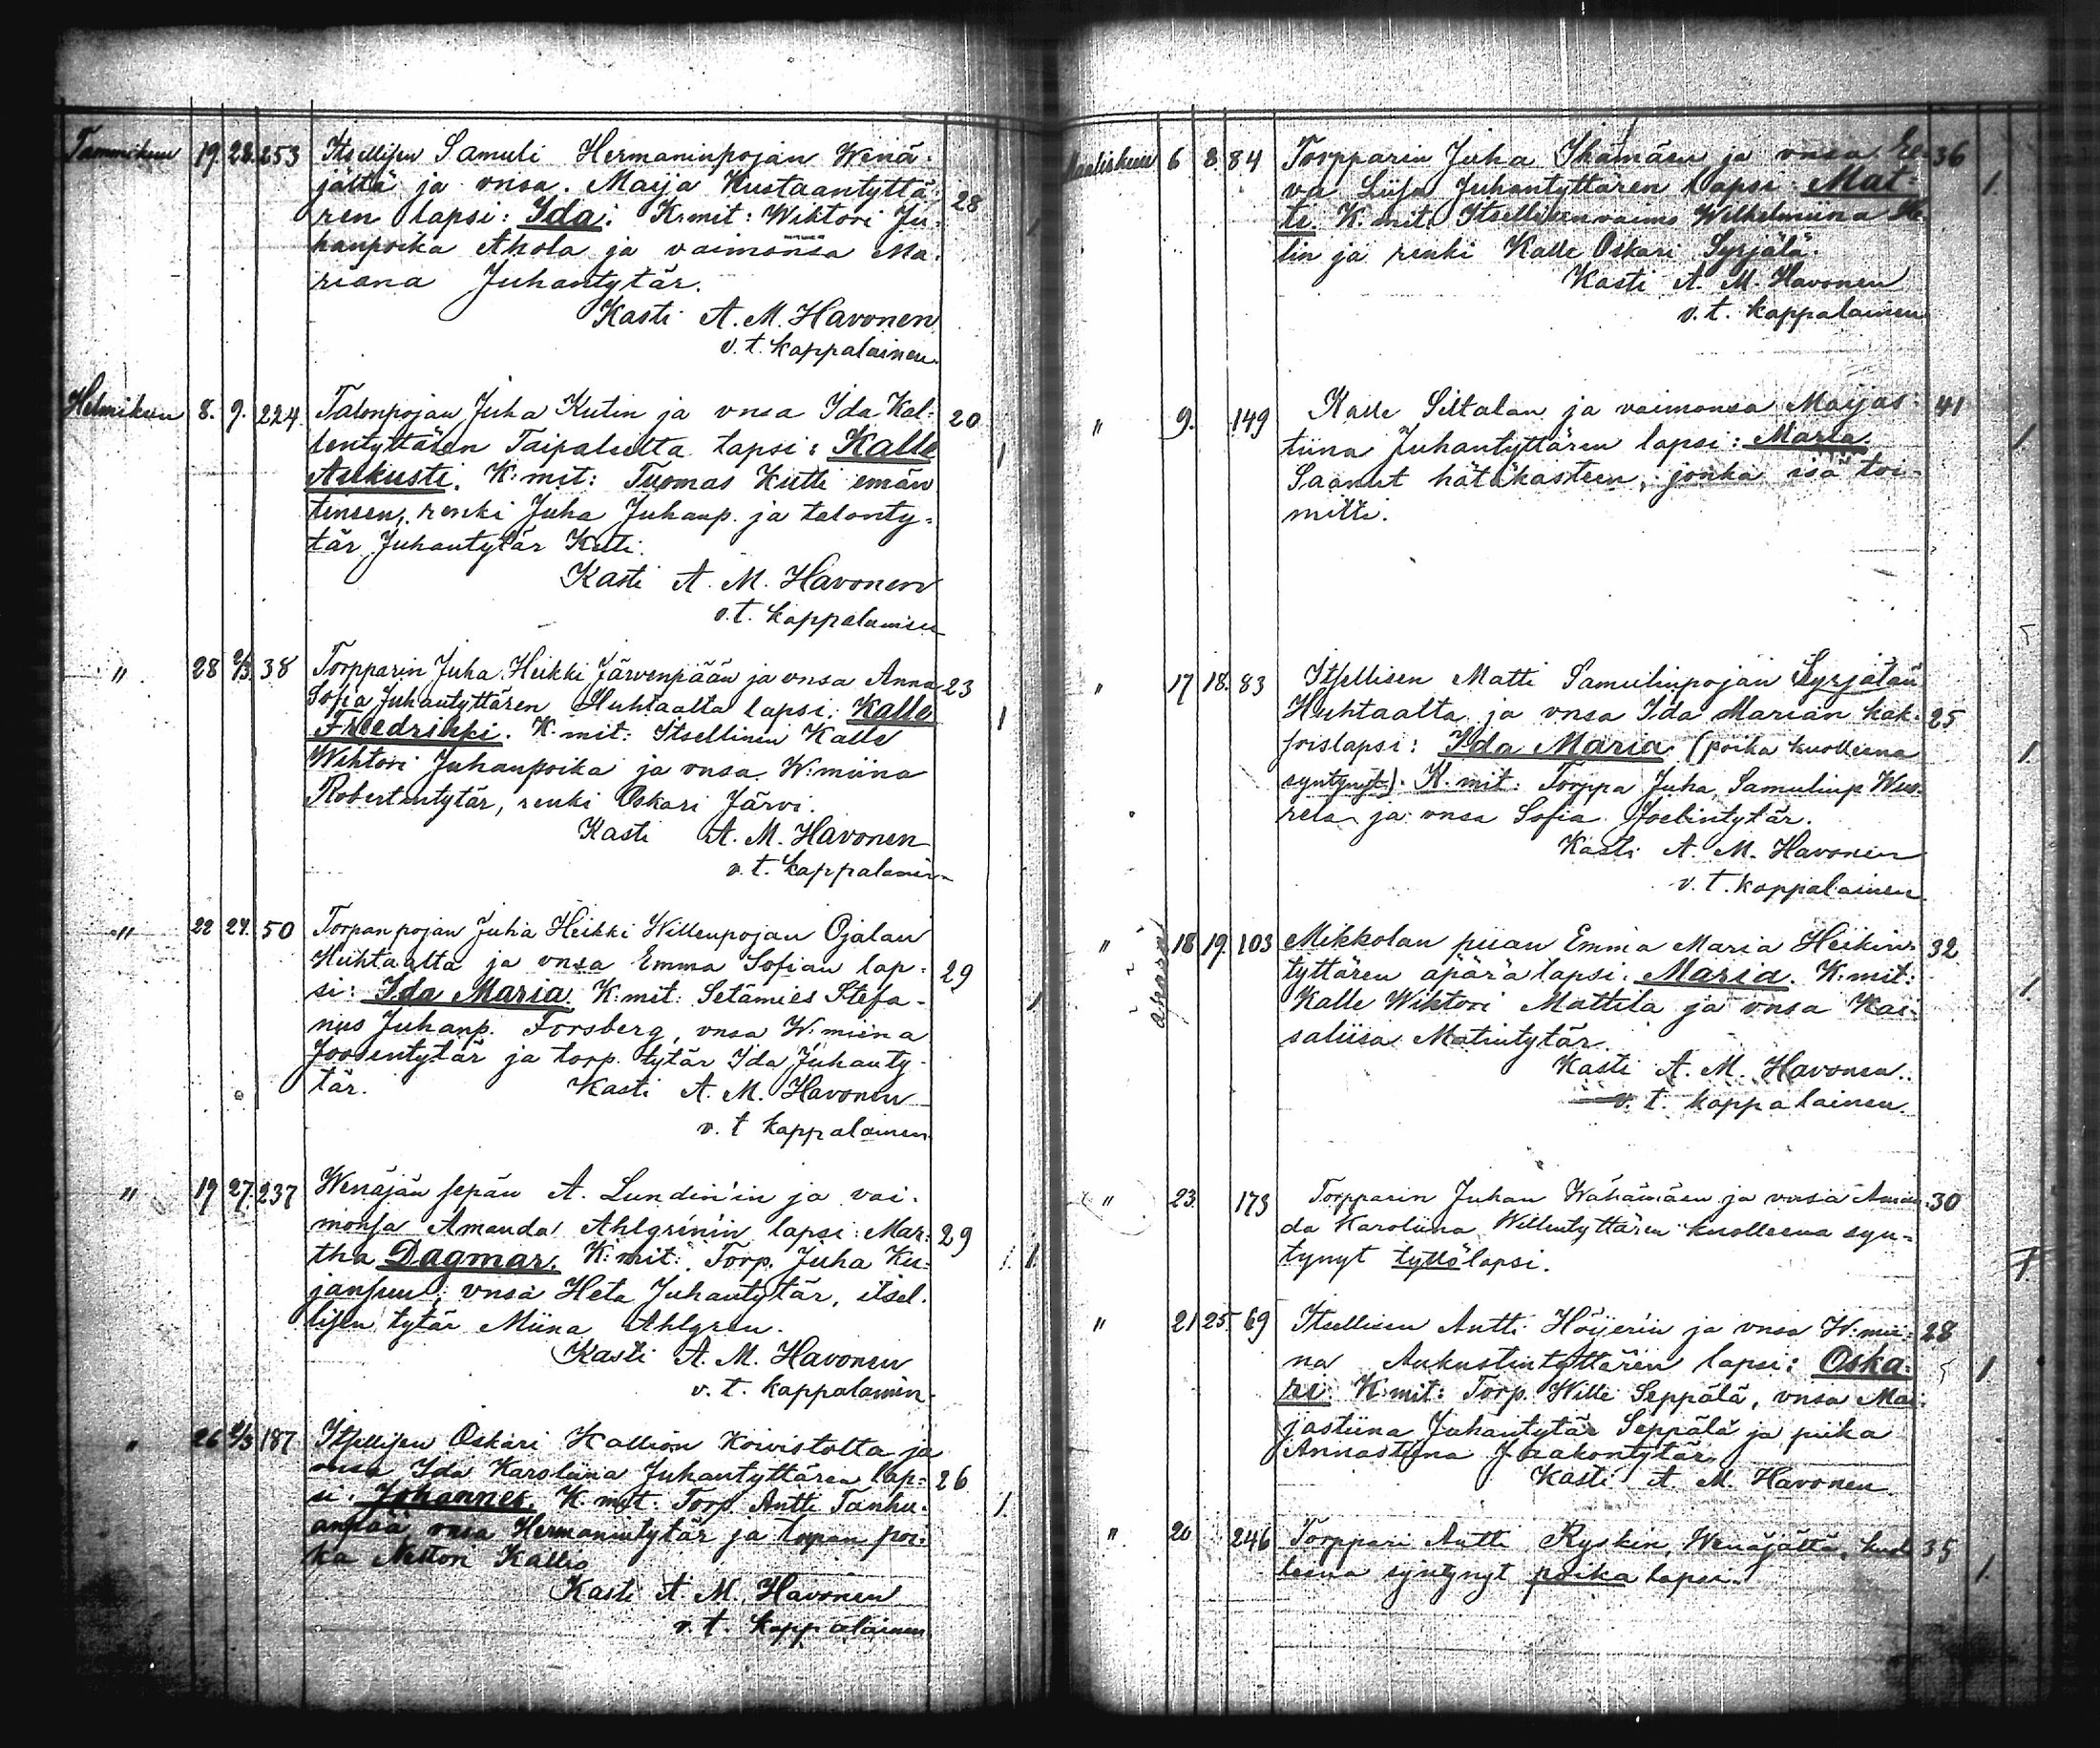 Tammikuu 19. 28. 253 Itsellisen Samuli Hermaninpojan Wenä-
jältä ja vnsa. Maija Kustaantyttä- 28
ren lapsi: Ida. K:mit: Wihtori Ju-
hanpoika Ahola ja vaimonsa Ma-
riana Juhantytär.
Kasti A. M. Havonen
v. t. kappalainen.
Helmikuu 8. 9. 224 Talonpojan Juha Kutin ja vnsa Ida Kal- 20
lentyttären Taipaleelta lapsi: Kalle
Aukusti. K:mit: Tuomas Kutti emän
tinsen, renki Juha Juhanp. ja talonty-
tär Juhantytär Kutti.
Kasti A. M. Havonen
v. t. kappalainen
" 28 2/3 38 Torpparin Juha Heikki Järvenpään ja vnsa Anna 23
Sofia Juhantyttären Huhtaalta lapsi: Kalle
Freedrikki. K:mit: Itsellinen Kalle
Wihtori Juhanpoika ja vnsa W:miina
Robertintytär, renki Oskari Järvi.
Kasti A. M. Havonen
v. t. kappalainen
" 22 24. 50 Torpanpojan Juha Heikki Willenpojan Ojalan
Huhtaalta ja vnsa Emma Sofian lap- 29
si: Ida Maria. K:mit: Setämies Stefa-
nus Juhanp. Forsberg, vnsa W:miina
Joosentytär ja torp. tytär Ida Juhanty-
tär. Kasti A. M. Havonen
v. t kappalainen
" 19 27. 237 Wenäjän sepän A. Lundin'in ja vai-
monsa Amanda Ahlgrin'in lapsi: Mar- 29
tha Dagmar. K:mit: Torp. Juha Ku-
jansuu, vnsa Heta Juhantytär, itsel-
lisen tytär Miina Ahlgren.
Kasti A. M. Havonen
v. t. kappalainen
" 26 2/3 187 Itsellisen Oskari Kallion Koivistolta ja
vnsa Ida Karoliina Juhantyttären lap- 26
si: Johannes. K:mit: Torp. Antti Tanhu-
anpää, vnsa Hermanintytär ja torpan poi-
ka Nestori Kallio
Kasti A. M. Havonen
v. t. kappalainen
Maaliskuu 6 8. 84 Torpparin Juha Ikämäen ja vnsa Ee- 36
va Liisa Juhantyttären lapsi: Mat-
ti. K:mit: Itsellisenvaimo Wilhelmiina He-
lin ja renki Kalle Oskari Syrjälä.
Kasti A. M. Havonen
v. t. kappalainen
" 9. 149 Kalle Siltalan ja vaimonsa Maijas- 41
tiina Juhantyttären lapsi: Maria.
Saanut hätäkasteen, jonka isä toi-
mitti.
" 17 18. 83 Itsellisen Matti Samulinpojan Syrjälän
Huhtaalta ja vnsa Ida Marian kak- 25
soislapsi: Ida Maria (poika kuolleena
syntynyt). K:mit: Torppa Juha Samulinp
ja vnsa Sofia Joelintytär.
Kasti A. M. Havonen
v. t. kappalainen
" 18 19. 103 Mikkolan piian Emma Maria Heikin- 32
tyttären äpärä lapsi: Maria. K:mit:
Kalle Wihtori Mattila ja vnsa Kai-
saliisa Matintytär.
Kasti A. M. Havonen.
v. t. kappalainen.
" 23. 173 Torpparin Juhan Wähämäen ja vnsa Aman 30
da Karoliina Willentyttären kuolleena syn-
tynyt tyttölapsi.
" 21 25. 69 Itsellisen Antti Höijer'in ja vnsa W:mii- 28
na Aukustintyttären lapsi: Oska-
ri. K:mit: Torp. Wille Seppälä, vnsa Mai-
jastiina Juhantytär Seppälä ja piika
Annastiina Jaakontytär
Kasti A. M. Havonen
" 20 246 Torppari Antti Ryskin, Wenäjältä, kuol 35
leena syntynyt poika lapsi.